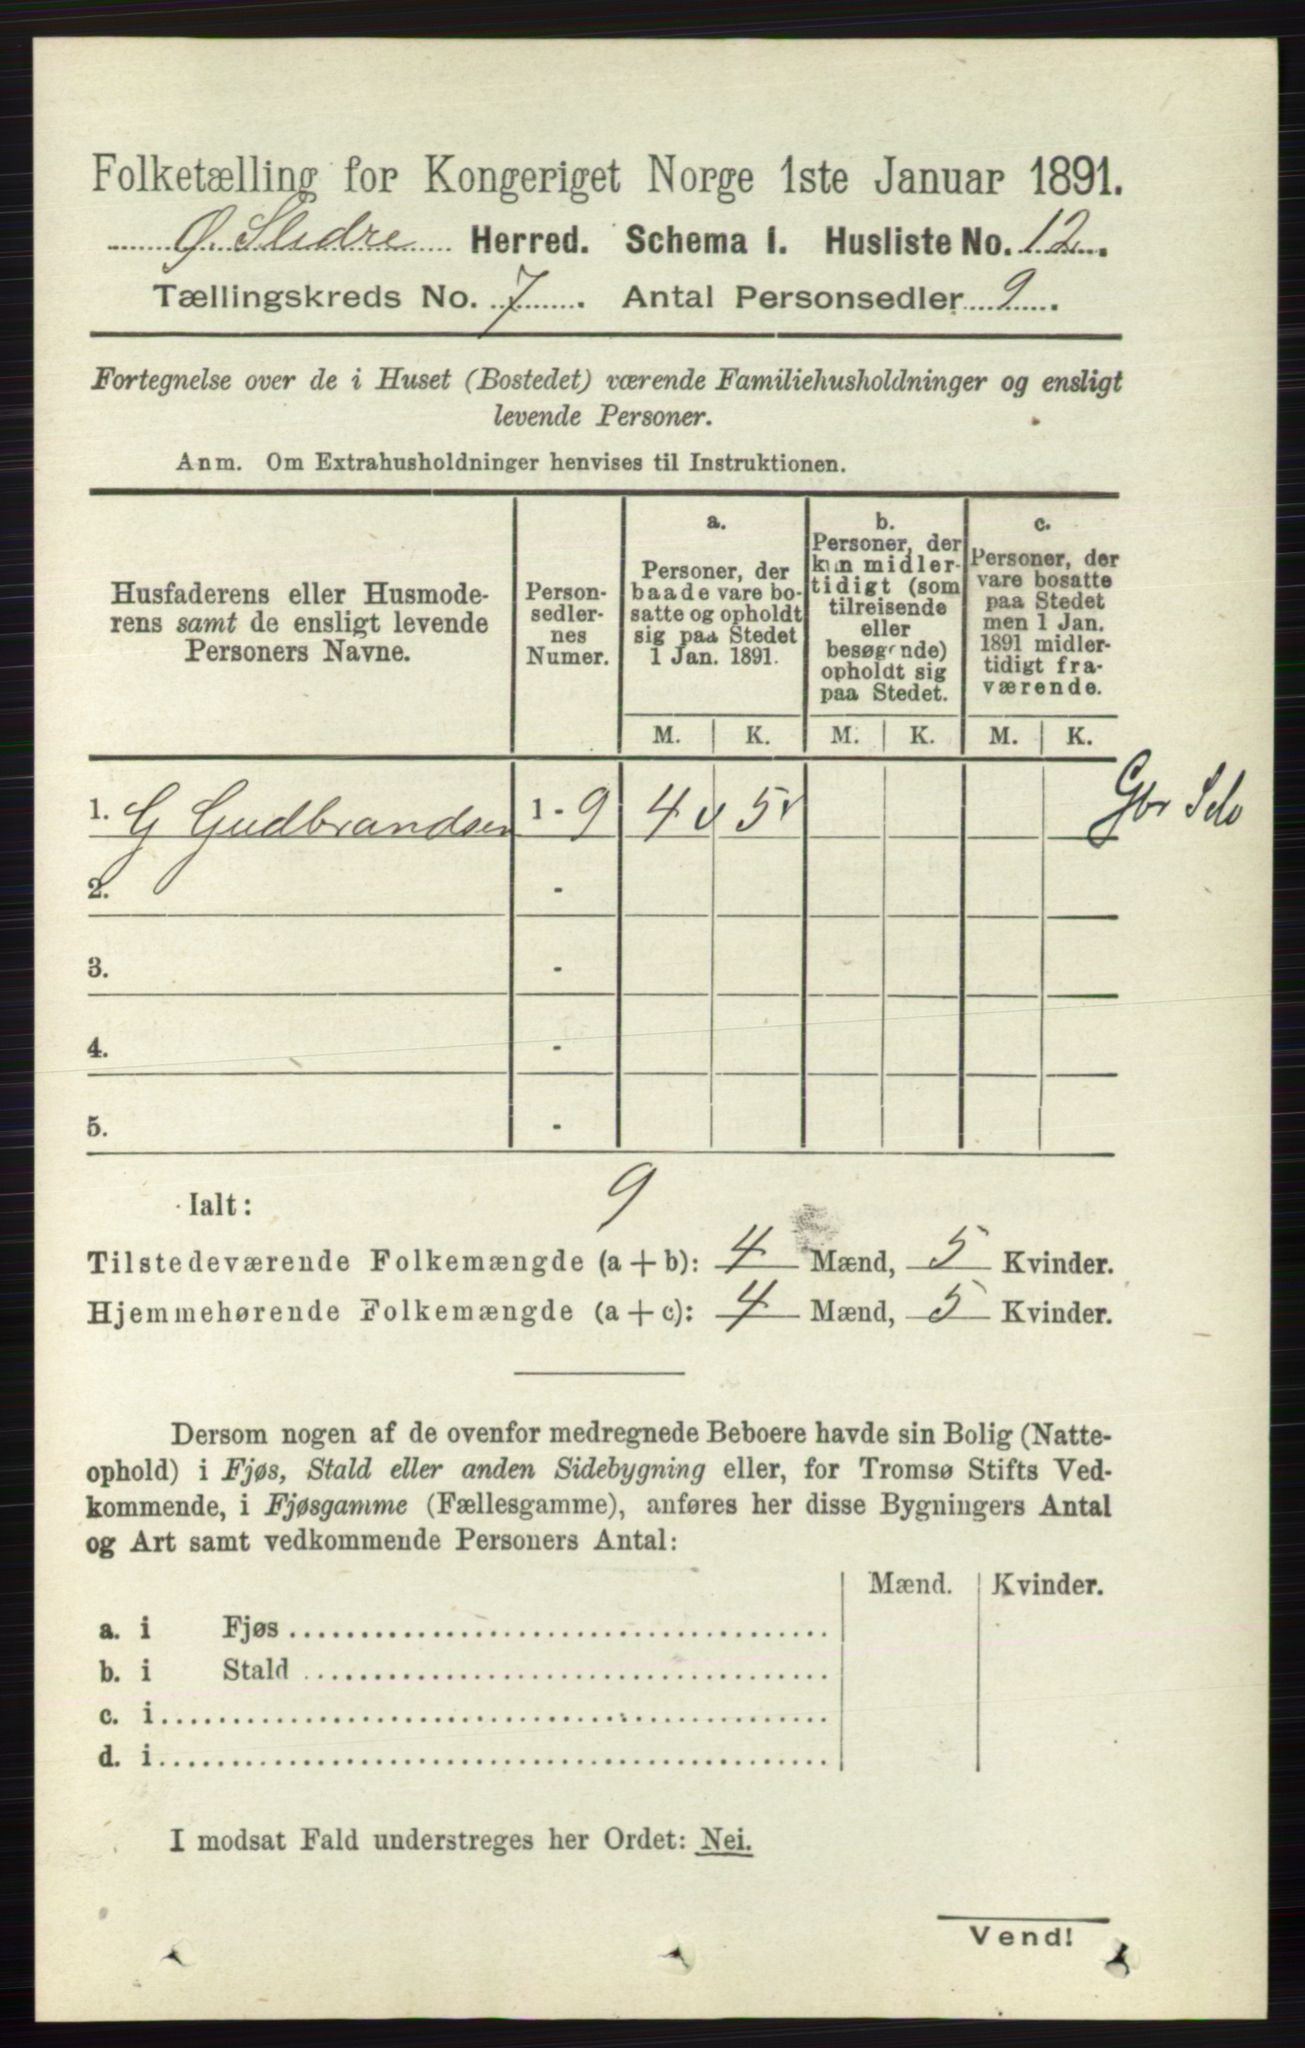 Folketælling for Kongeriget Norge 1ste Januar 1891.
Ø. Slidre Herred. Schema I. Husliste No. 12.
Tællingskreds No. 7. Antal Personsedler 9.
Fortegnelse over de i Huset (Bostedet) værende Familiehusholdninger og ensligt
levende Personer.
Anm. Om Extrahusholdninger henvises til Instruktionen.
Husfaderens eller Husmode-
rens samt de ensligt levende
Personers Navne.
Person-
sedler-
nes
Numer.
a.
Personer, der
baade vare bo-
satte og opholdt
sig paa Stedet
1 Jan. 1891.
b.
Personer, der
kun midler-
tidigt (som
tilreisende
eller
besøgende)
opholdt sig
paa Stedet.
c.
Personer, der
vare bosatte
paa Stedet
men 1 Jan.
1891 midler-
tidigt fra-
værende.
M. K. M. K. M. K.
1. G Gudbrandsen 1 - 9 4 5 Gbr Selv
2. -
3. -
4. -
5. -
Ialt: 9
Tilstedeværende Folkemængde (a + b): 4 Mænd, 5 Kvinder.
Hjemmehørende Folkemængde (a + c): 4 Mænd, 5 Kvinder.
Dersom nogen af de ovenfor medregnede Beboere havde sin Bolig (Natte-
ophold) i Fjøs, Stald eller anden Sidebygning eller, for Tromsø Stifts Ved-
kommende, i Fjøsgamme (Fællesgamme), anføres her disse Bygningers Antal
og Art samt vedkommende Personers Antal:
Mænd. Kvinder.
a. i Fjøs
b. i Stald
c. i
d. i
I modsat Fald understreges her Ordet: Nei.
Vend!